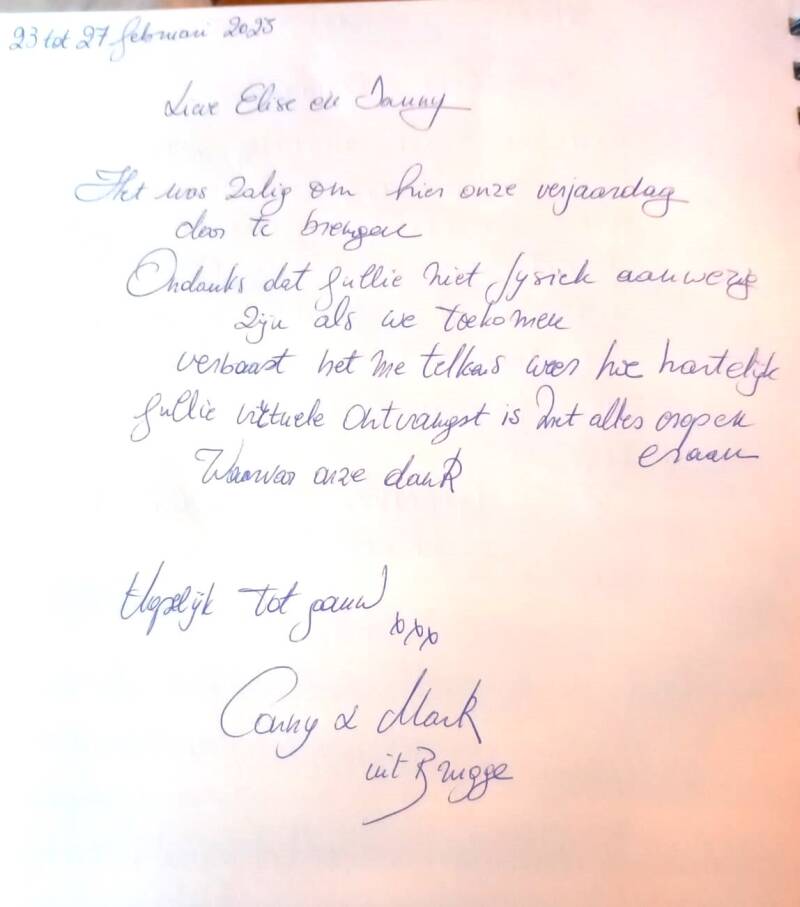 23 tot 27 februari 2025
Lieve Elise en Danny
Het was zalig om hier onze verjaardag
door te brengen
Ondanks dat jullie niet fysiek aanwezig
zijn als we toekomen
verbaast het me telkens weer hoe hartelijk
jullie virtuele ontvangst is met alles erop en
eraan
Waarvoor onze dank
Hopelijk tot gauw
xxx
Conny & Mark
uit Brugge